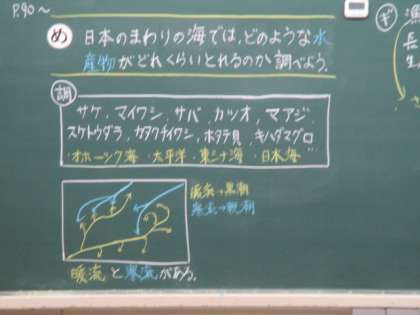 P.90～
め 日本のまわりの海では、どのような水
産物がどれくらいとれるのか調べよう。
調
サケ、マイワシ、サバ、カツオ、マアジ、
スケトウダラ、カタクチイワシ、ホタテ貝、キハダマグロ
・オホーツク海 ・太平洋 ・東シナ海 ・日本海
暖流→黒潮
寒流→親潮
暖流と寒流がある。
ギ
漁
長
生